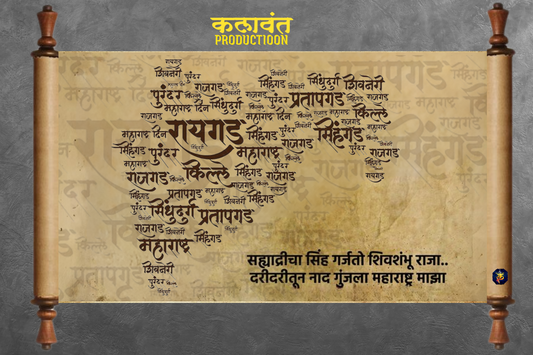 कलावंत
PRODUCTIOON
रायगड
शिवनेरी
पुरंदर
किल्ले
राजगड
सिंहगड
सिंधुदुर्ग
शिवनेरी
प्रतापगड
राजगड
महाराष्ट्र दिन
सिंधुदुर्ग
पुरंदर
किल्ले
रायगड
सिंहगड
महाराष्ट्र
राजगड
पुरंदर
सिंहगड
राजगड
किल्ले
सिंहगड
राजगड
प्रतापगड
पुरंदर
सिंधुदुर्ग
प्रतापगड
राजगड
सिंहगड
महाराष्ट्र
शिवनेरी
पुरंदर
सह्याद्रीचा सिंह गर्जतो शिवशंभू राजा..
दरीदरीतून नाद गुंजला महाराष्ट्र माझा